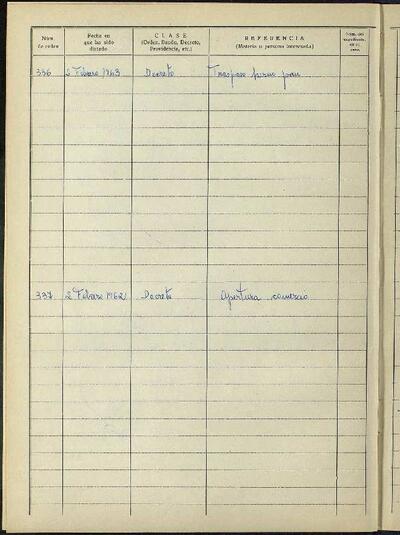 Núm. de orden
Fecha en que ha sido dictado
CLASE (Orden, Bando, Decreto, Providencia, etc.)
REFERENCIA (Materia o persona interesada)
Núm. del expediente, en su caso
336 2 Febrero 1963 Decreto Traspaso horno pan
337 2 Febrero 1962 Decreto Apertura comercio